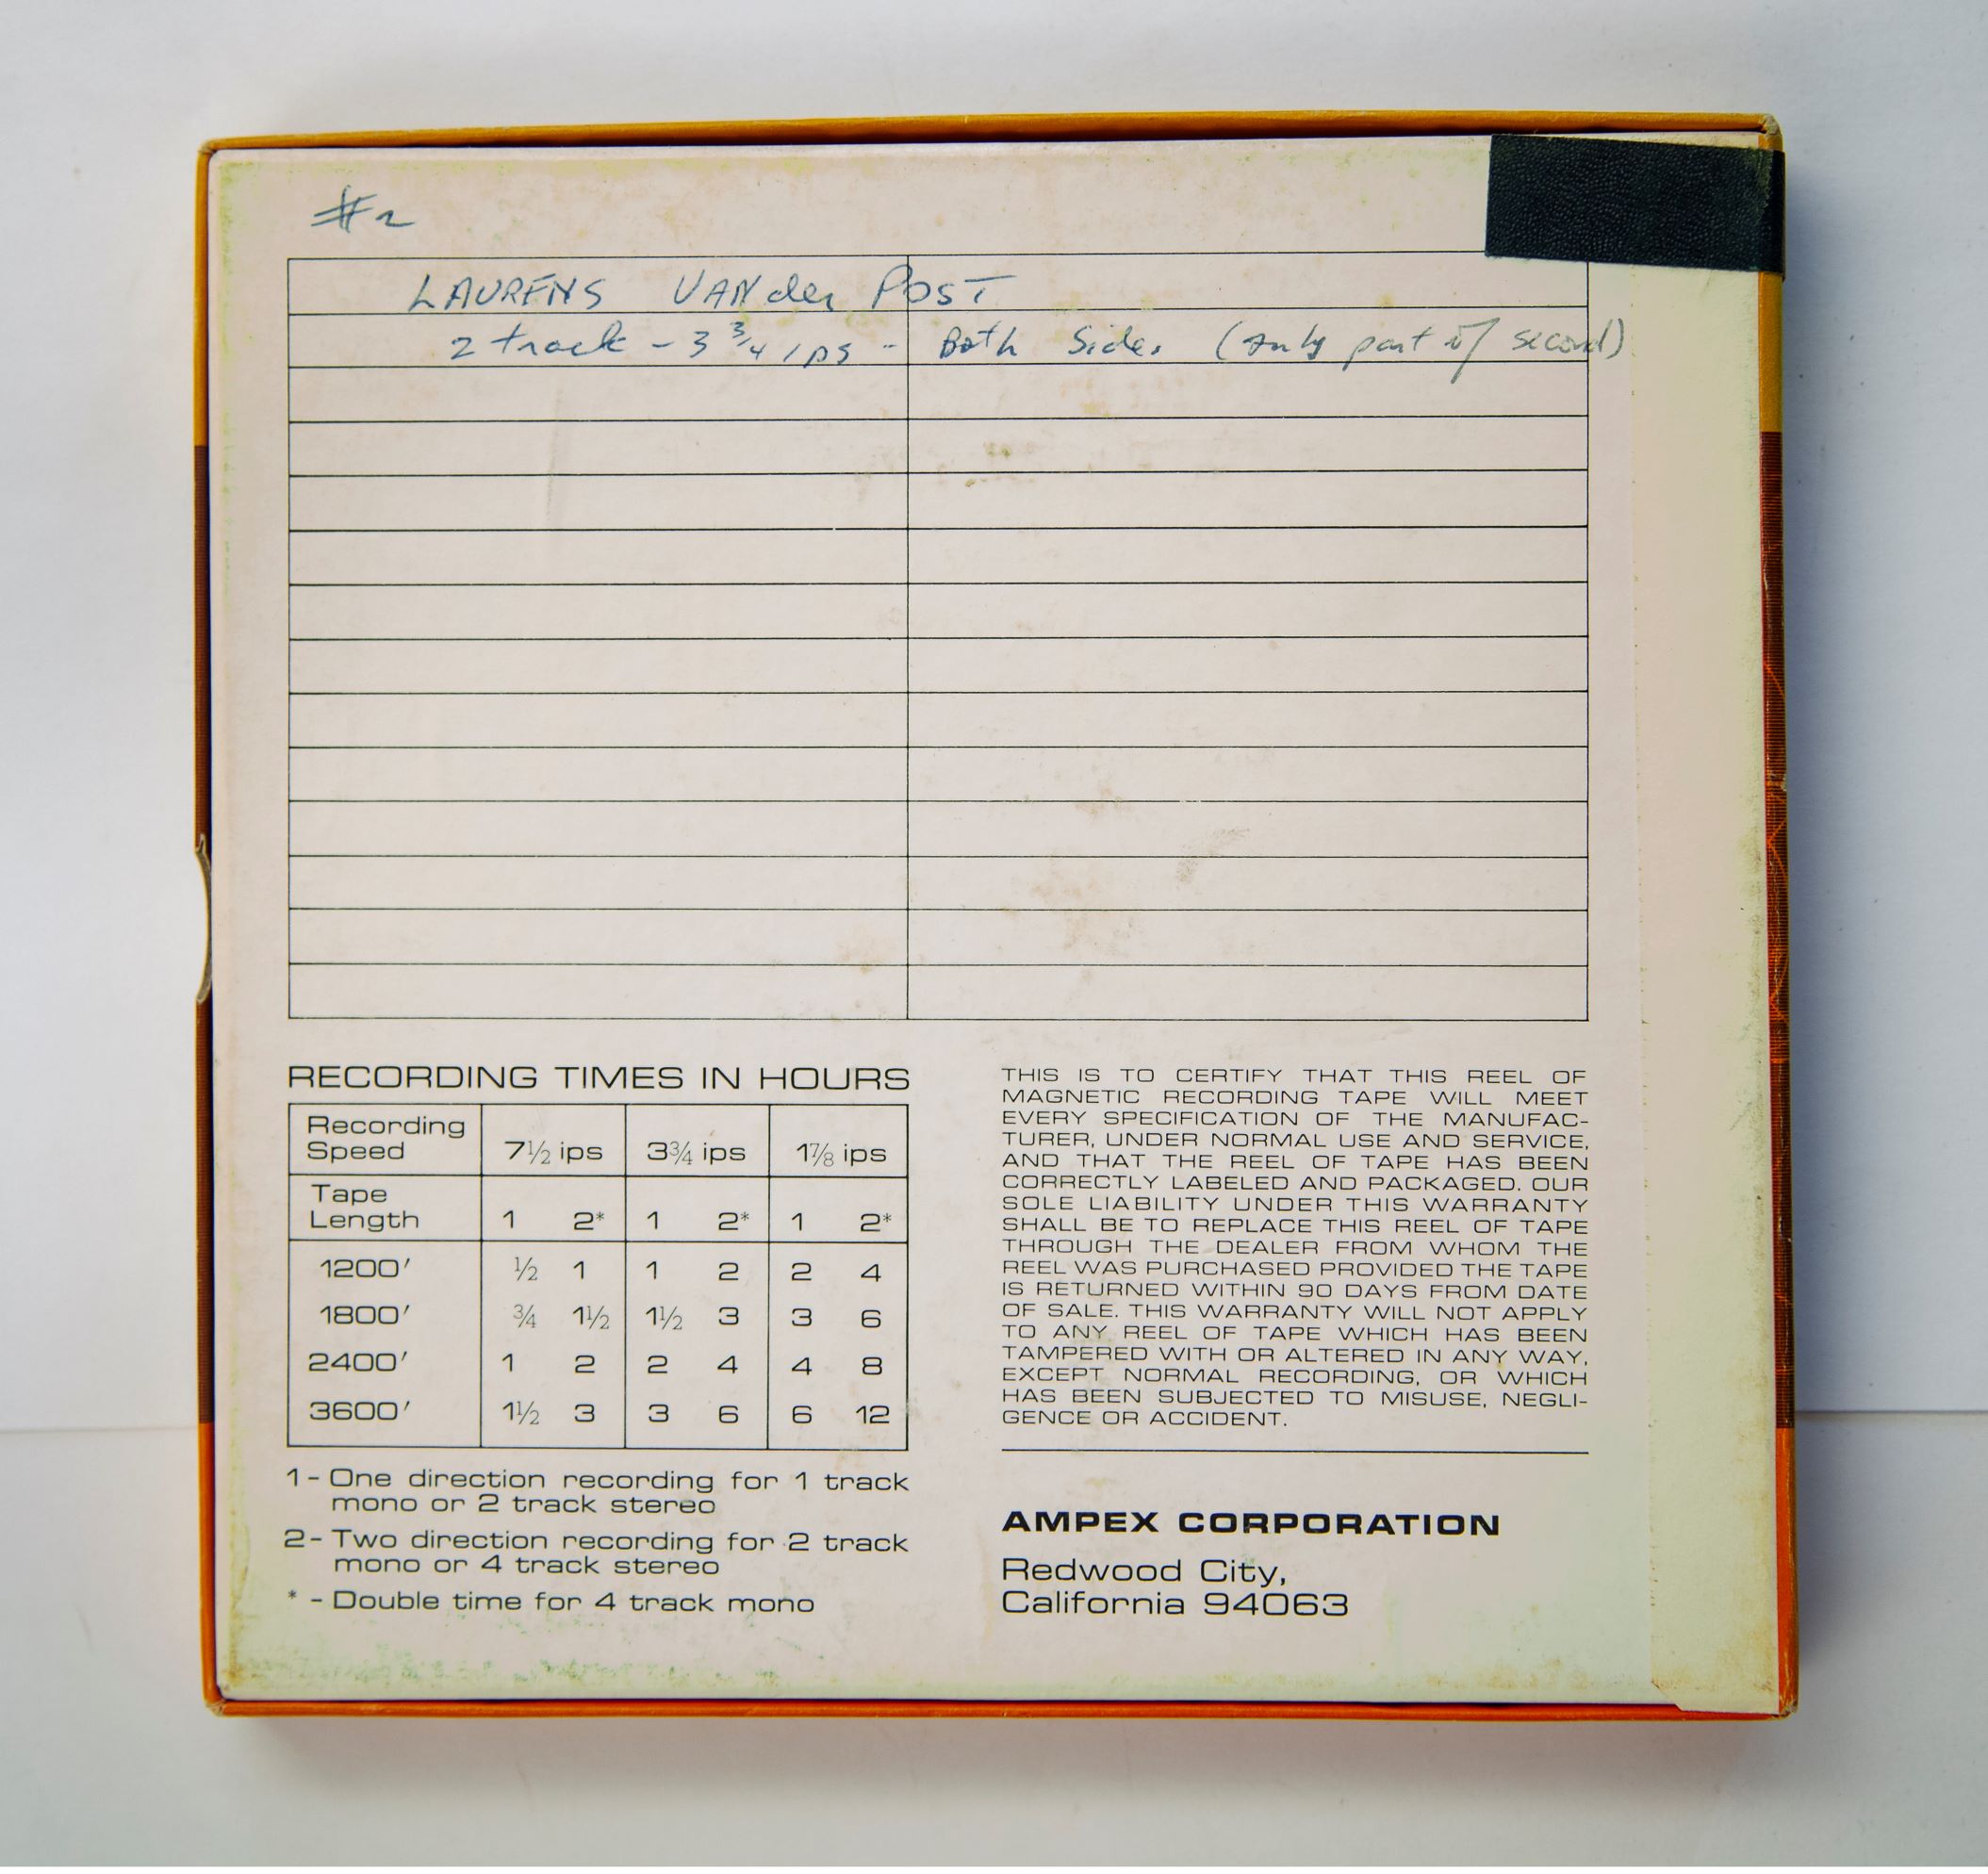 #2
LAURENS VANder POST
2 track - 3 3/4 ips - Both Sides (only part of second)
RECORDING TIMES IN HOURS
Recording Speed 7½ ips 3¾ ips 1⅞ ips
Tape Length 1 2* 1 2* 1 2*
1200′ ½ 1 1 2 2 4
1800′ ¾ 1½ 1½ 3 3 6
2400′ 1 2 2 4 4 8
3600′ 1½ 3 3 6 6 12
1- One direction recording for 1 track
mono or 2 track stereo
2- Two direction recording for 2 track
mono or 4 track stereo
* - Double time for 4 track mono
THIS IS TO CERTIFY THAT THIS REEL OF
MAGNETIC RECORDING TAPE WILL MEET
EVERY SPECIFICATION OF THE MANUFAC-
TURER, UNDER NORMAL USE AND SERVICE,
AND THAT THE REEL OF TAPE HAS BEEN
CORRECTLY LABELED AND PACKAGED. OUR
SOLE LIABILITY UNDER THIS WARRANTY
SHALL BE TO REPLACE THIS REEL OF TAPE
THROUGH THE DEALER FROM WHOM THE
REEL WAS PURCHASED PROVIDED THE TAPE
IS RETURNED WITHIN 90 DAYS FROM DATE
OF SALE. THIS WARRANTY WILL NOT APPLY
TO ANY REEL OF TAPE WHICH HAS BEEN
TAMPERED WITH OR ALTERED IN ANY WAY,
EXCEPT NORMAL RECORDING, OR WHICH
HAS BEEN SUBJECTED TO MISUSE, NEGLI-
GENCE OR ACCIDENT.
AMPEX CORPORATION
Redwood City,
California 94063